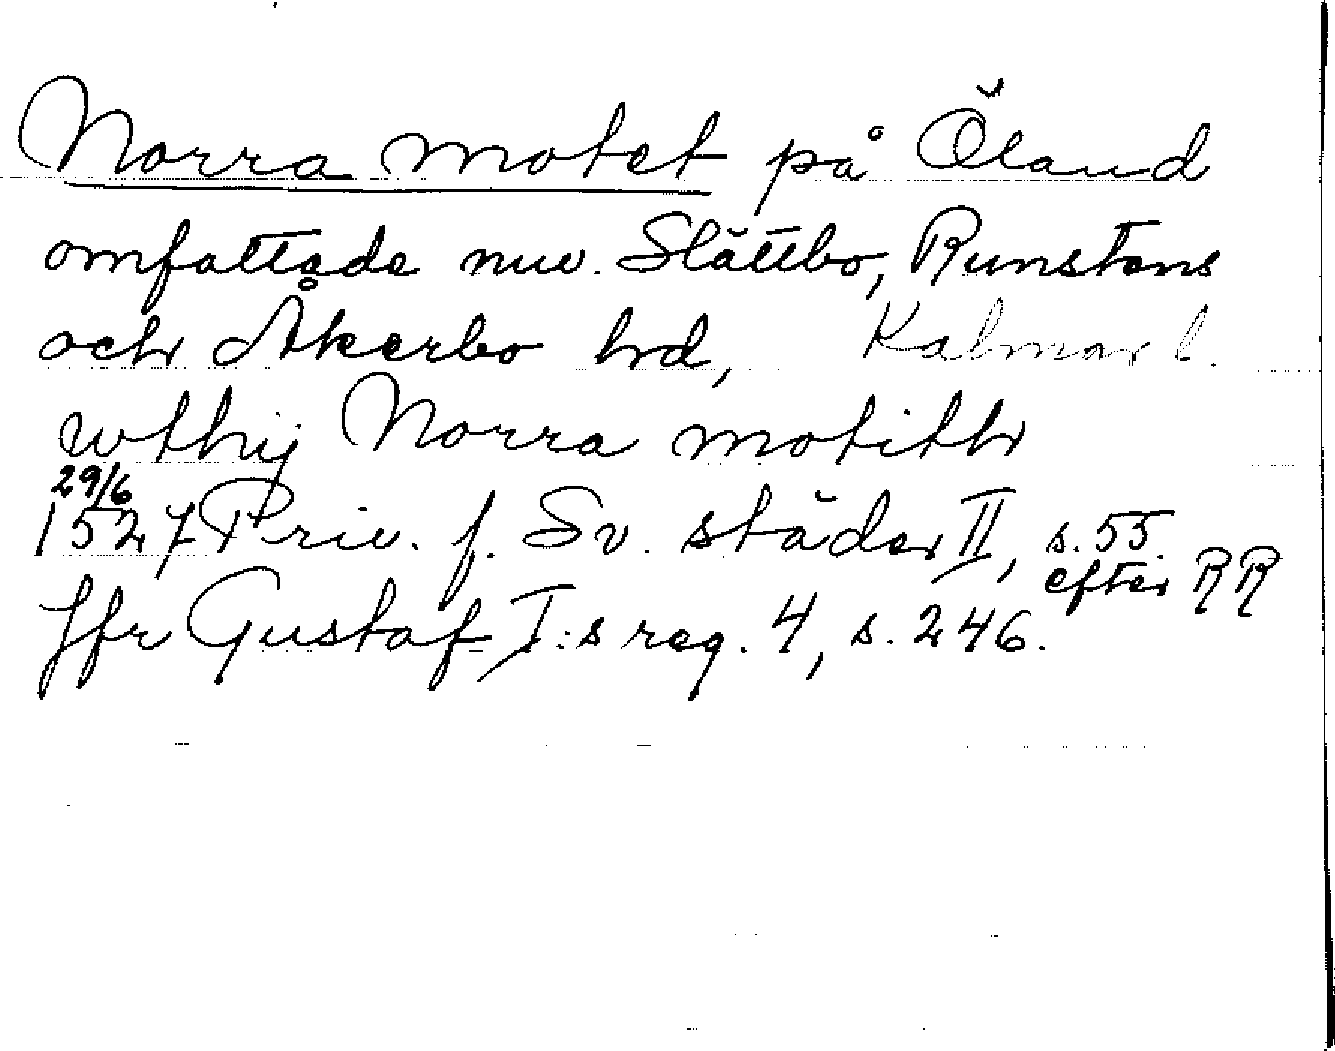 Norra motet på Öland
omfattade nuv. Slättbo, Runstens
och Åkerbo hd, Kalmar l.
wthij Norra motith
29/6
1527 Priv. f. Sv. städer II, s. 55.
efter RR
Jfr Gustaf I:s reg. 4, s. 246.